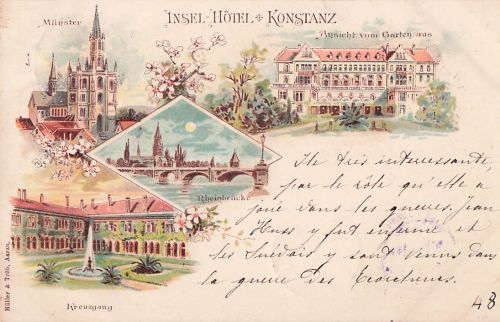 INSEL-HÔTEL ✤ KONSTANZ
Münster
Ansicht vom Garten aus
Rheinbrücke
Kreuzgang
Müller & Trüb, Aarau.
Ile très interessante,
par le rôle qu'elle a
joué dans les guerres. Jean
Huss y fut enfermé et
les Suédois y sont venus dans
la guerre des
48